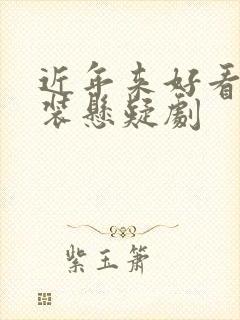 近年来好看
装悬疑剧
紫玉箫